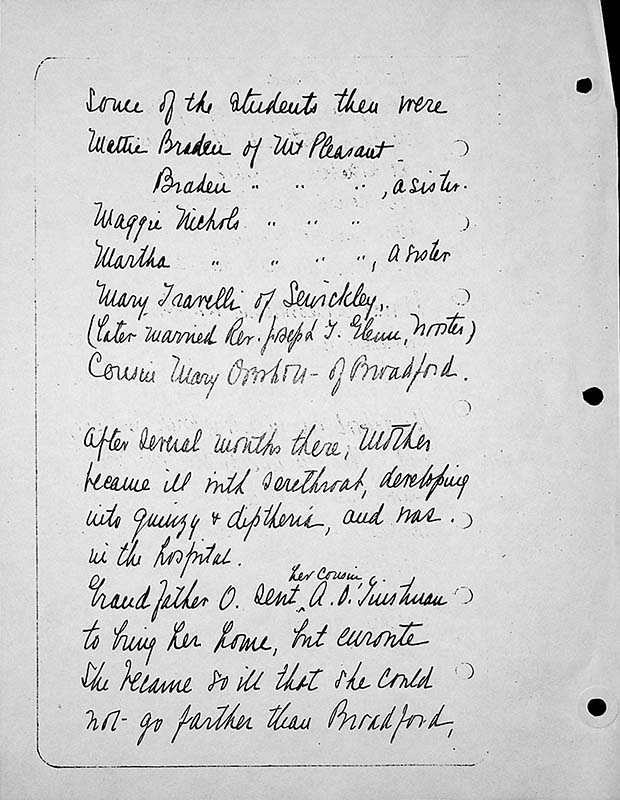 Some of the students then were
Mattie Braden of Mt Pleasant
Braden " " " , a sister.
Maggie Nichols " " "
Martha " " " " , a sister
Mary Travelli of Sewickley,
(later married Rev. Joseph T. Glenn, Wooster)
Cousin Mary Overholt - of Broadford.
After several months there, Mother
became ill with sorethroat, developing
into quinzy & diptheria, and was
in the hospital.
Grandfather O. sent her cousin, A. O. Tinstman
to bring her home, but enroute
she became so ill that she could
not go farther than Broadford,